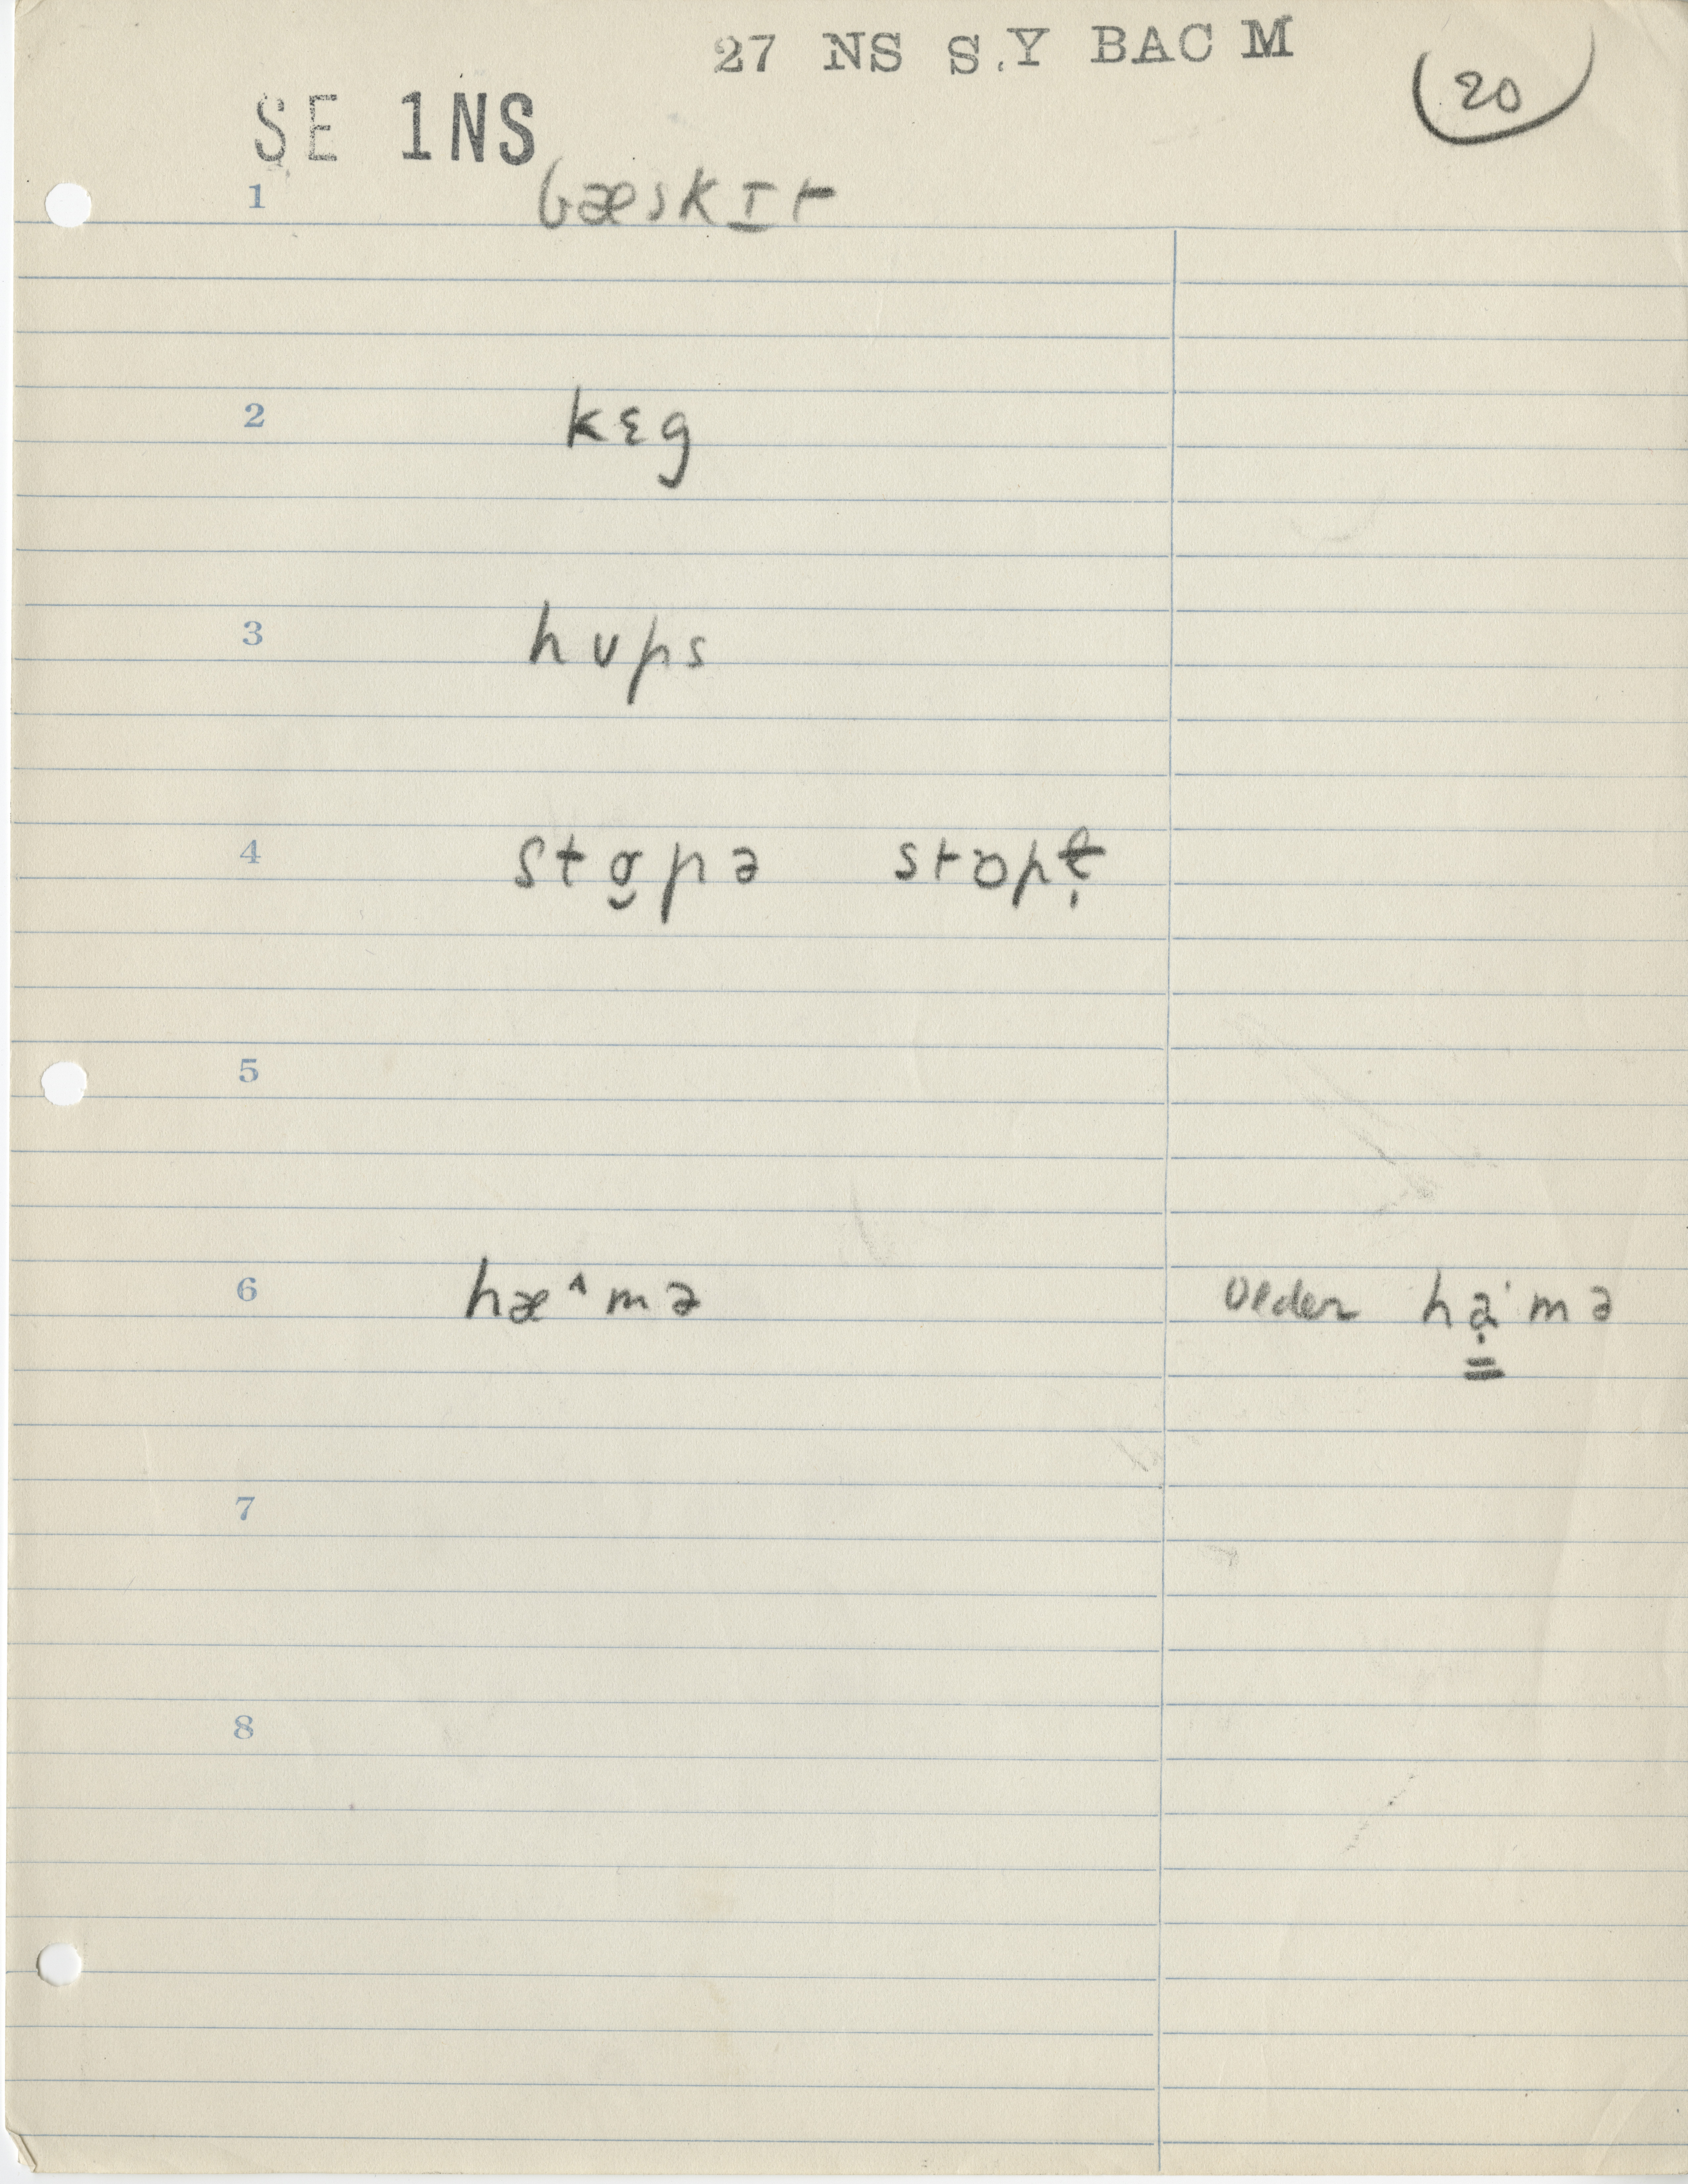 27 NS S.Y BAC M
20
SE 1NS
1 bæskɪt
2 kɛg
3 hʊps
4 stɒ̮pə stɒpɫ̩
5
6 hæˑmə older hạˑmə
7
8